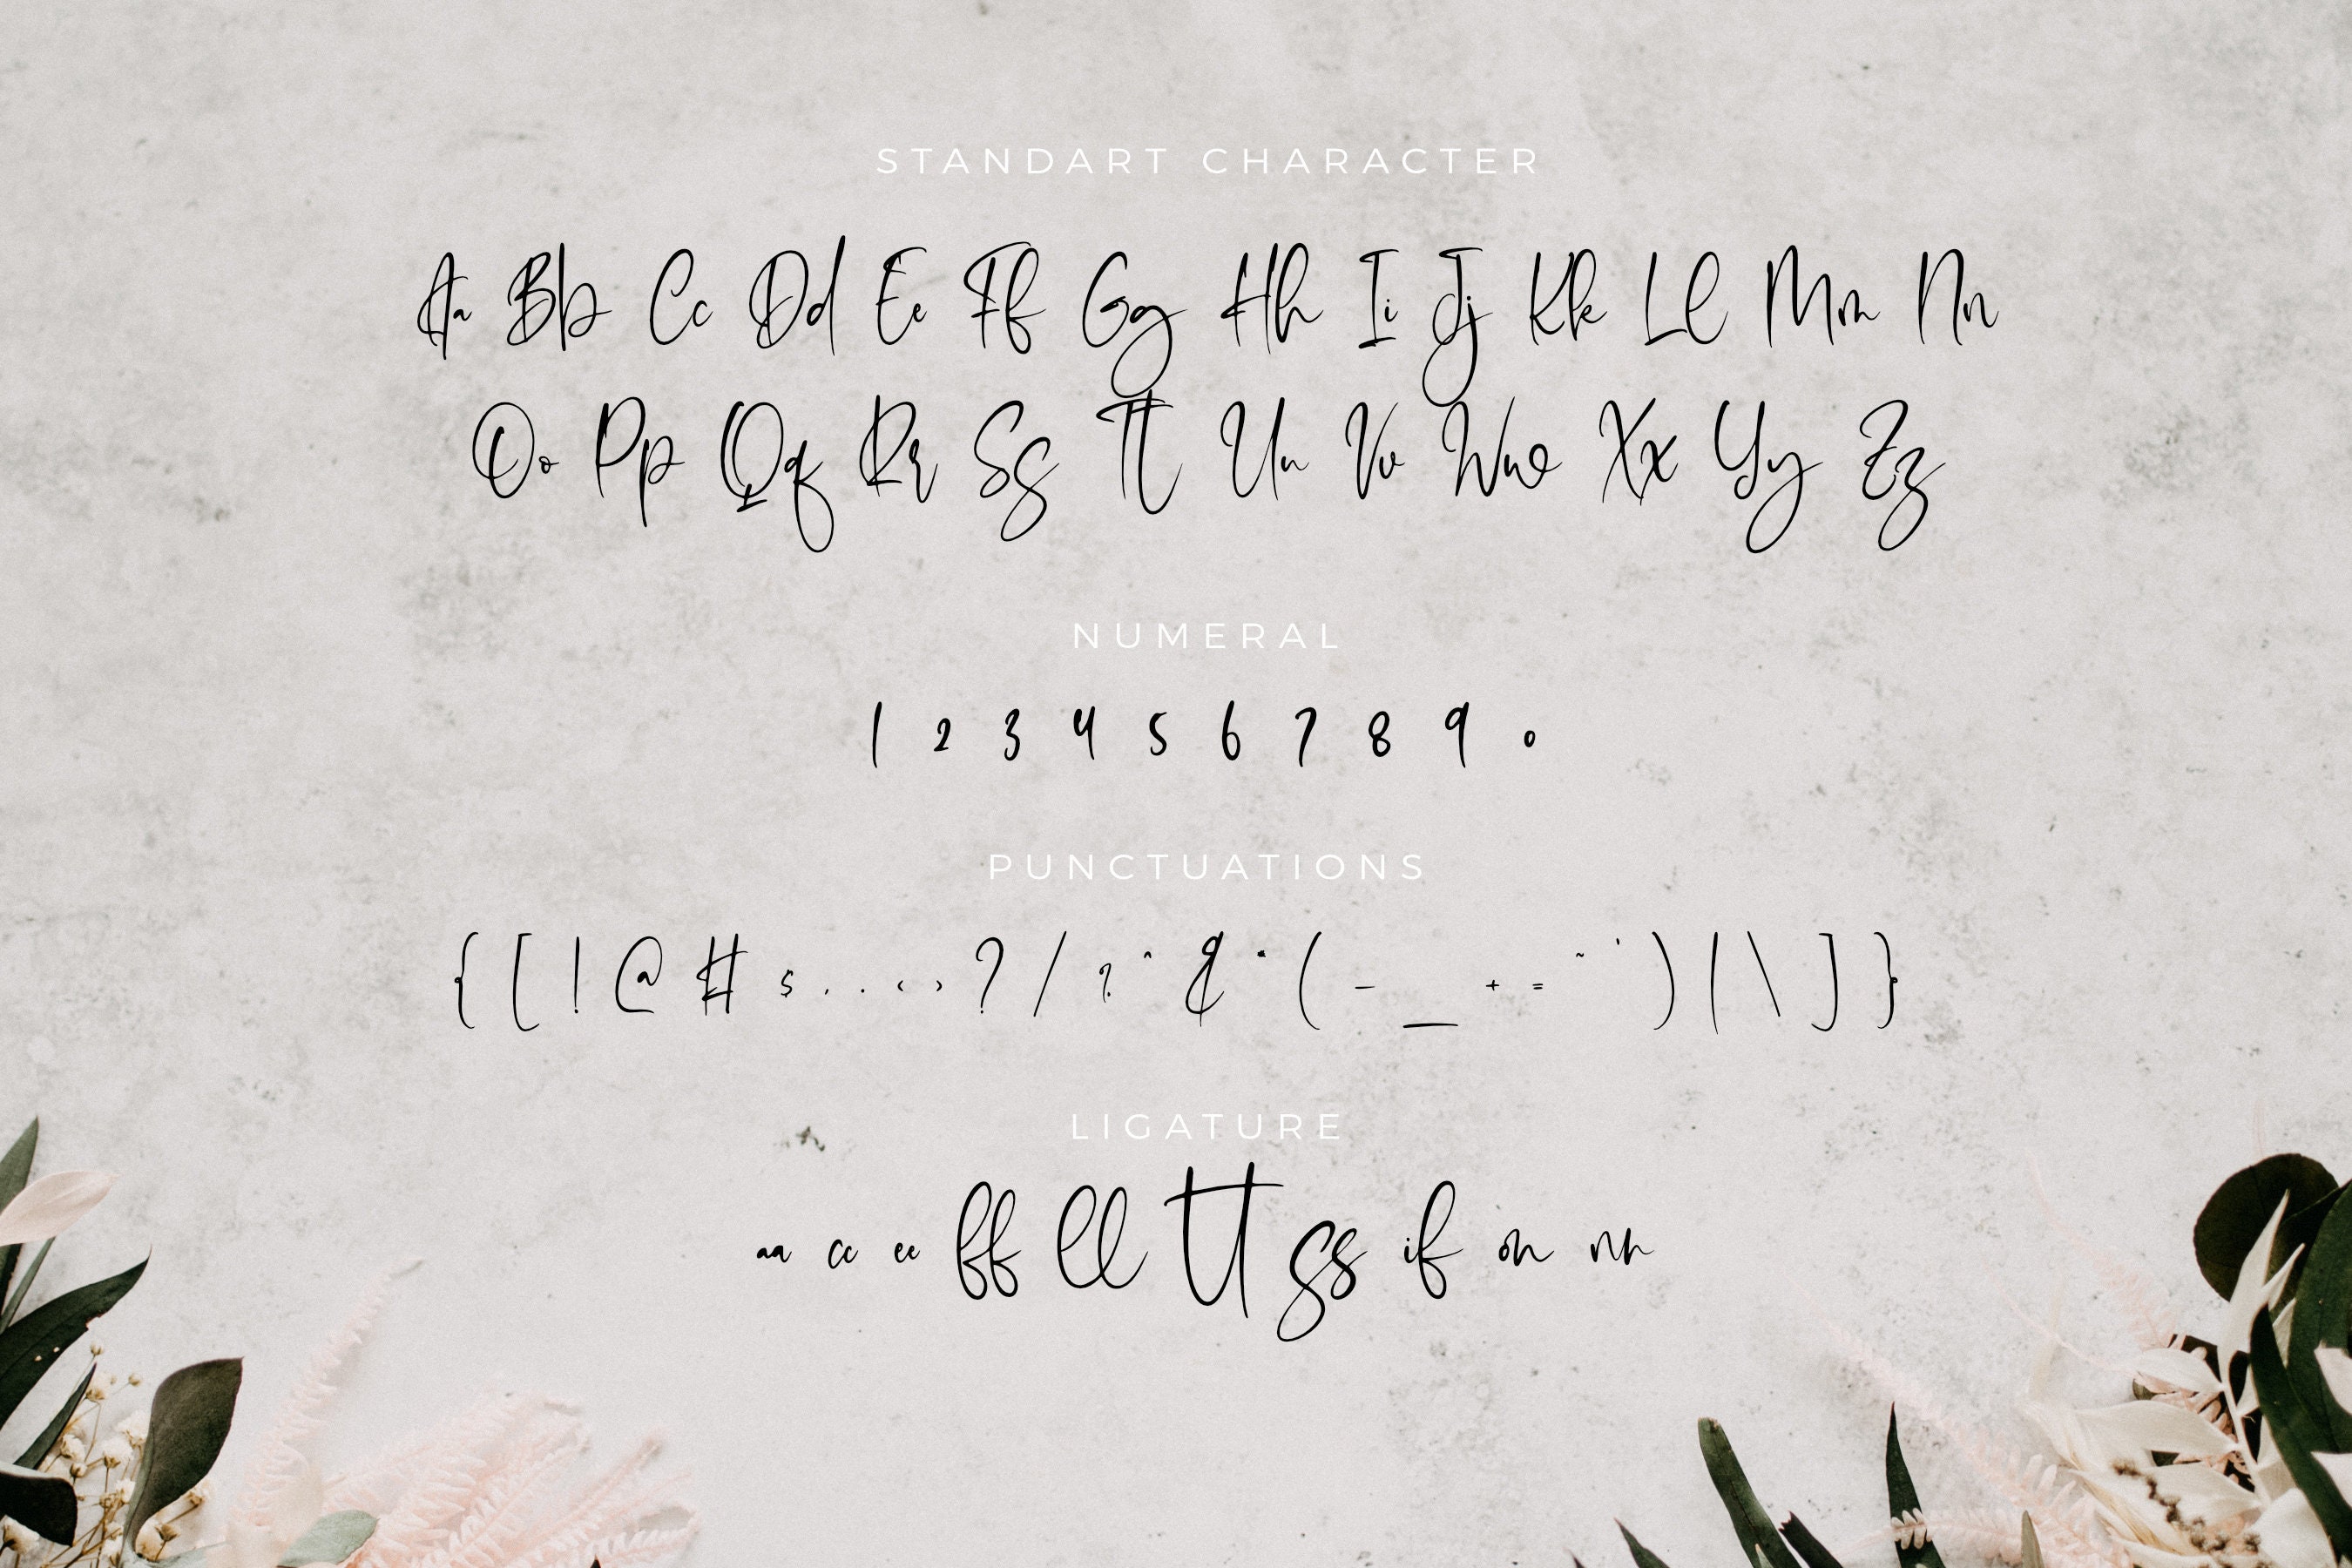 STANDART CHARACTER
Aa Bb Cc Dd Ee Ff Gg Hh Ii Jj Kk Ll Mm Nn
Oo Pp Qq Rr Ss Tt Uu Vv Ww Xx Yy Zz
NUMERAL
1 2 3 4 5 6 7 8 9 0
PUNCTUATIONS
{ [ ! @ # $ , . < > ? / ? ^ & * ( - _ + = ~ ' ) | \ ] }
LIGATURE
aa cc ee ff ll tt ss if on nn